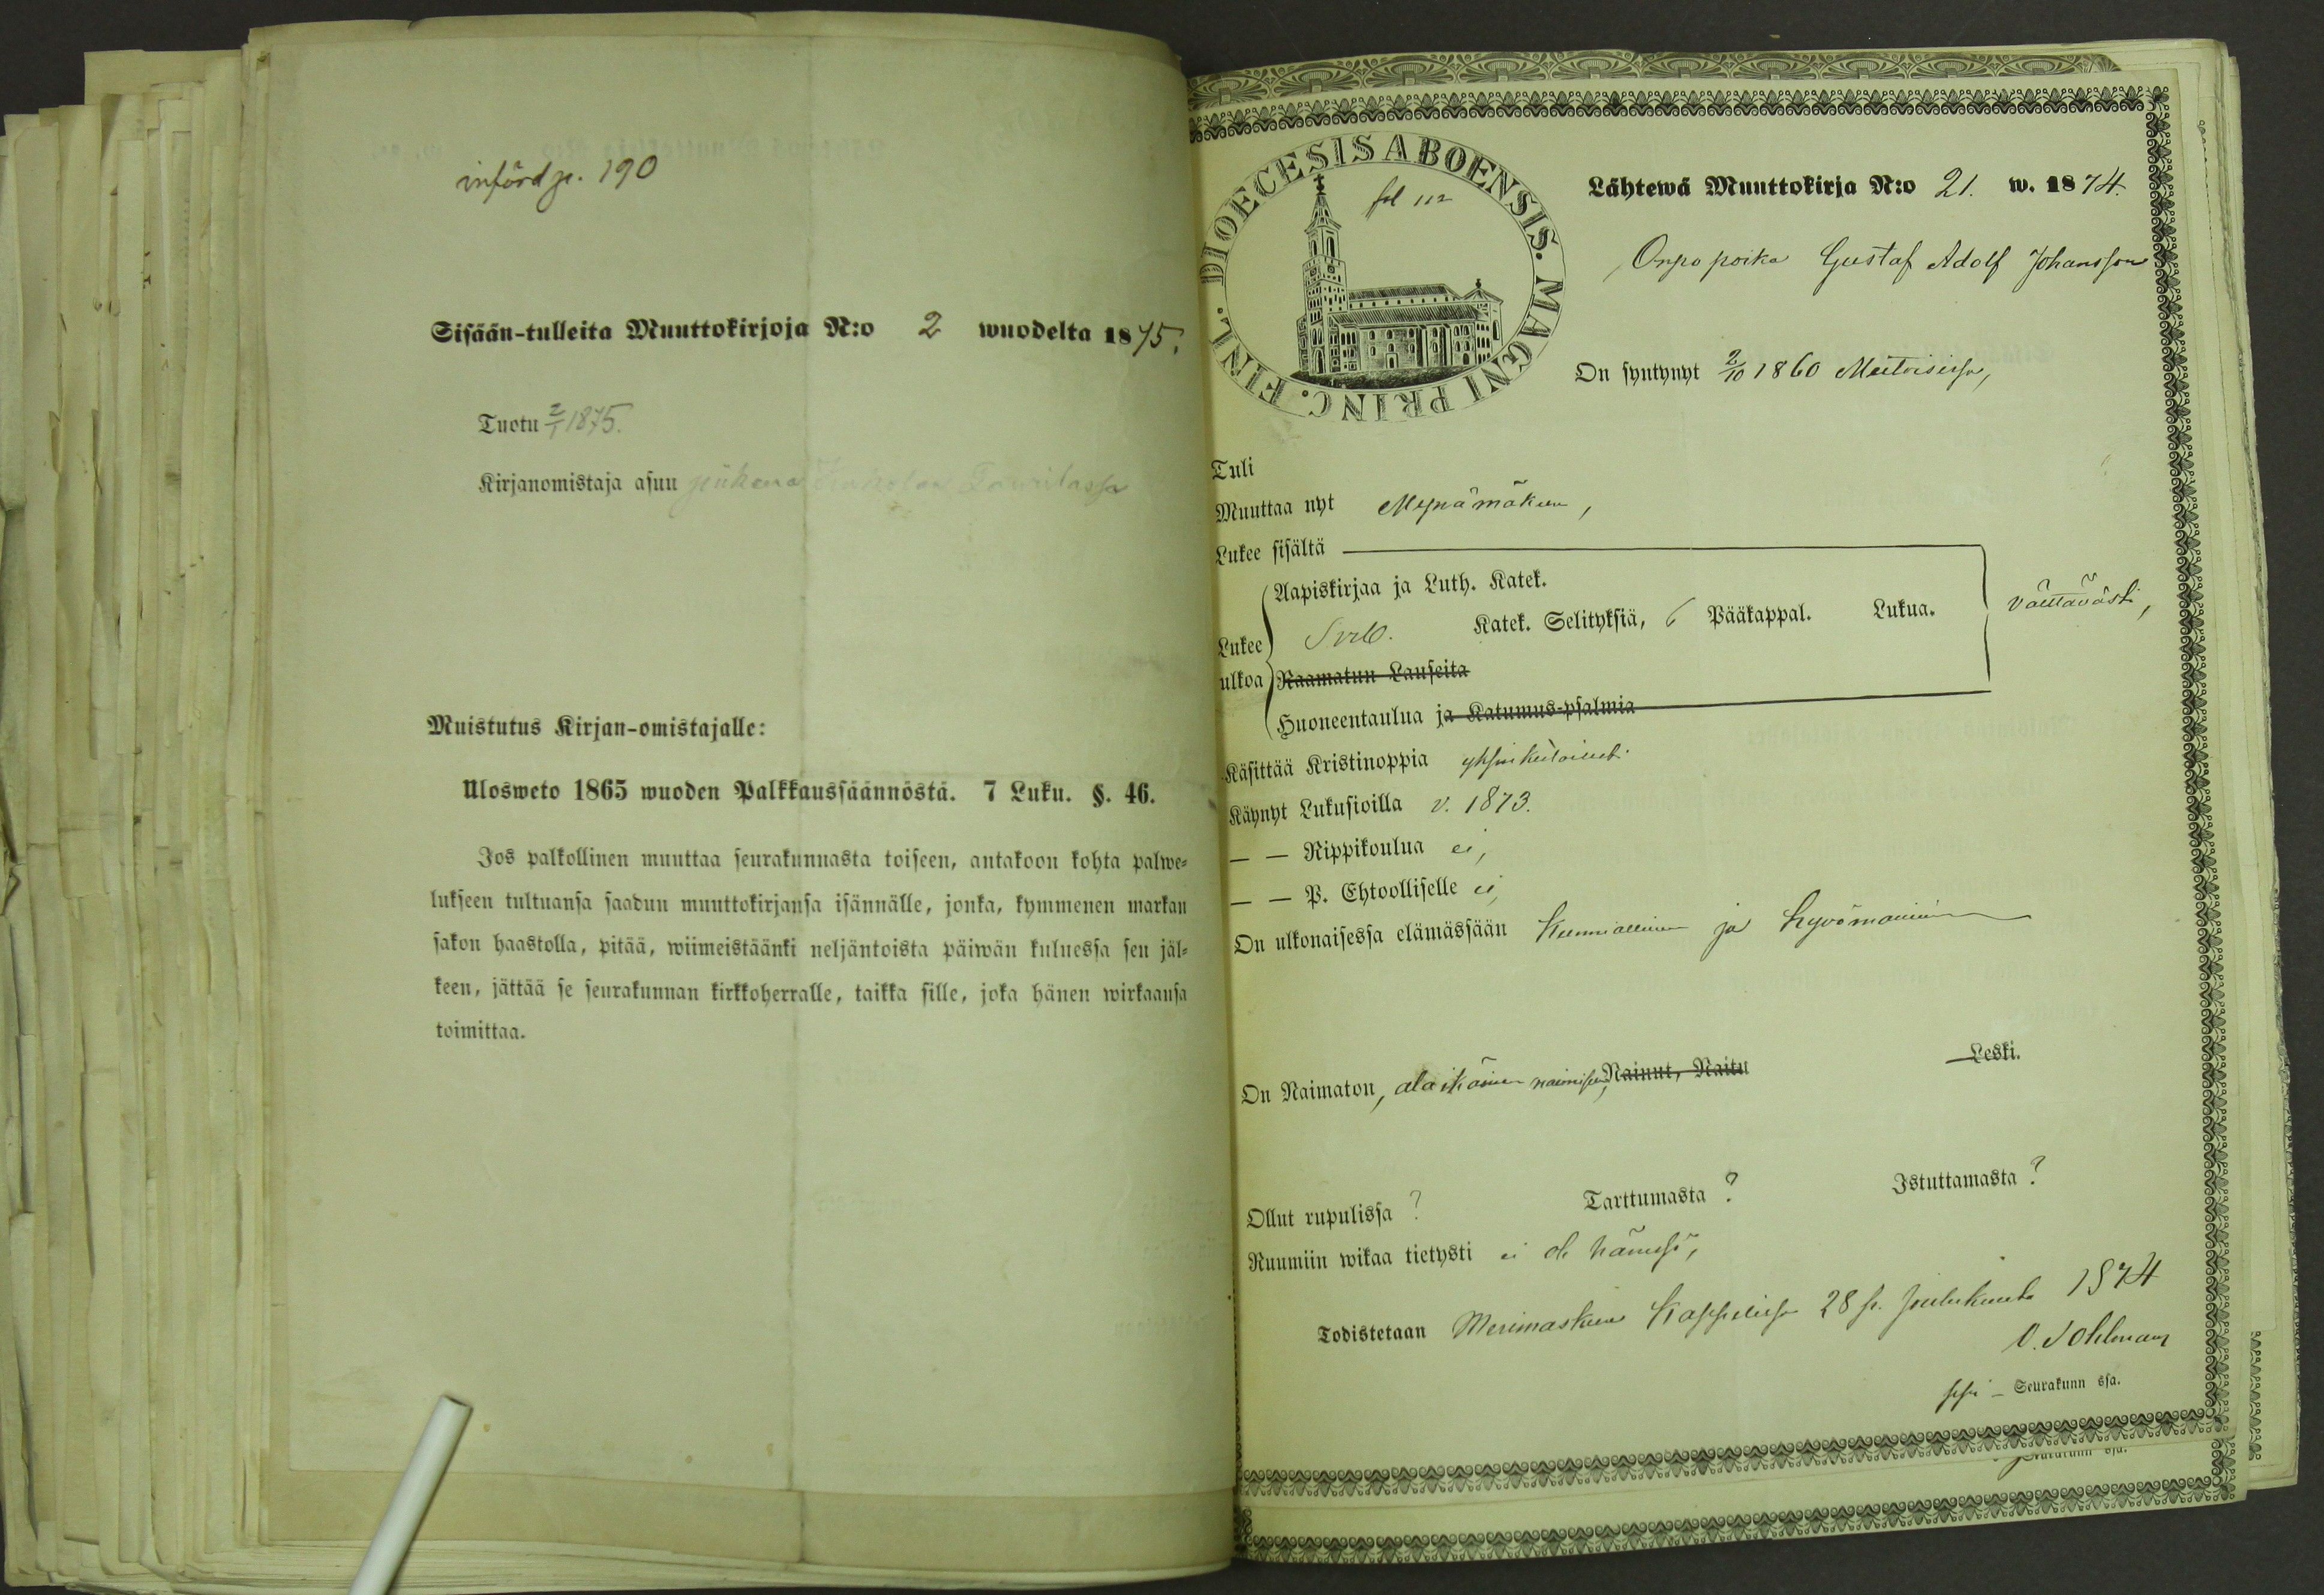 införd p. 190
Sisään-tulleita Muuttokirjoja N:o 2 wuodelta 1875.
Tuotu 2/1 1875.
Kirjanomistaja asuu
Muistutus Kirjan-omistajalle:
Ulosweto 1865 wuoden Palkkaussäännöstä. 7 Luku. §. 46.
Jos palkollinen muuttaa seurakunnasta toiseen, antakoon kohta palwe-
lukseen tultuansa saadun muuttokirjansa isännälle, jonka, kymmenen markan
sakon haastolla, pitää, wiimeistäänki neljäntoista päiwän kuluessa sen jäl-
keen, jättää se seurakunnan kirkkoherralle, taikka sille, joka hänen wirkaansa
toimittaa.
DIOECESIS ABOENSIS. MAGNI PRINC. FINL.
fol 112
Lähtewä Muuttokirja N:o 21. w. 1874.
Orpo poika Gustaf Adolf Johansson
On syntynyt 2/10 1860
Tuli
Muuttaa nyt Mynämäkeen,
Lukee sisältä
Aapiskirjaa ja Luth. Katek.
Lukee ulkoa Katek. Selityksiä, 6 Pääkappal. Lukua. välttävästi,
Raamatun Lauseita
Huoneentaulua ja Katumus-psalmia
Käsittää Kristinoppia yksinkertaisesti
Käynyt Lukusioilla v. 1873.
— — Rippikoulua ei,
— — P. Ehtoolliselle ei,
On ulkonaisessa elämässään Kunniallinen ja hyvämaininen
On Naimaton, alaikäinen naimiseen, Nainut, Naitu Leski.
Ollut rupulissa ? Tarttumasta ? Istuttamasta ?
Ruumiin wikaa tietysti ei ole hänessä,
Todistetaan Merimaskun Kappelissa 28 p. Joulukuuta 1874
O. Sohlman
Seurakunn ssa.